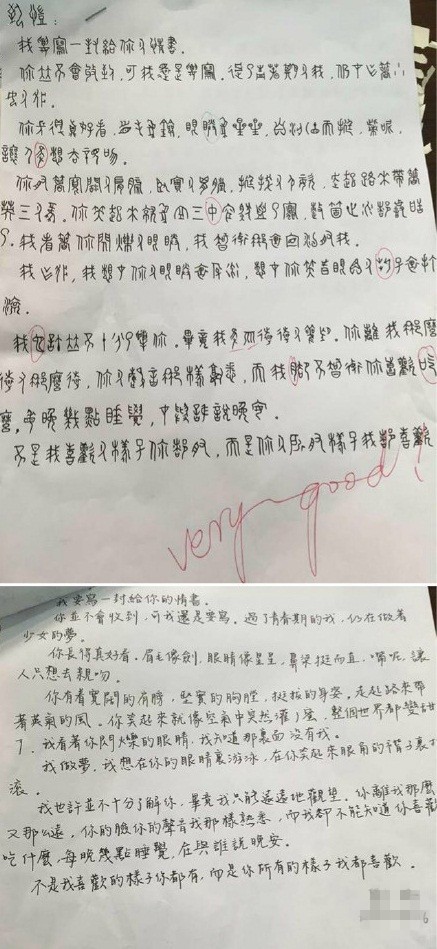 我要寫一封給你的情書。
你並不會收到，可我還是要寫。過了青春期的我，仍在做着少
女的夢。
你長得真好看，眉毛像劍，眼睛像星星，鼻梁挺而直，嘴呢，
讓人只想去親吻。
你有着寬闊的肩膀，堅實的胸膛，挺拔的身姿，走起路來帶着
英氣的風。你笑起來就像空氣中突然灌了風，整個世界都變甜
了。我看着你閃爍的眼睛，我知道那裏面沒有我。
我做夢，我想在你的眼睛裏游泳，在你笑起眼角的褶子裏打
滾。
我也許並不十分了解你，畢竟我只能遠遠的觀望。你離我那麼
very good!
我要寫一封給你的情書。
你並不會收到，可我還是要寫。過了青春期的我，仍在做着
少女的夢。
你長得真好看。眉毛像劍，眼睛像星星，鼻梁挺而直，嘴呢，讓
人只想去親吻。
你有着寬闊的肩膀，堅實的胸膛，挺拔的身姿。走起路來帶
着英氣的風。你笑起來就像空氣中突然灌了風，整個世界都變甜
了。我看着你閃爍的眼睛，我知道那裏面沒有我。
我做夢，我想在你的眼睛裏游泳，在你笑起來眼角的褶子裏打
滾。
我也許並不十分了解你，畢竟我只能遠遠地觀望。你離我那麼
又那麼遠，你的臉你的聲音我那樣熟悉，而我都不能知道你喜歡
吃什麼，每晚幾點睡覺，在與誰說晚安。
不是我喜歡的樣子你都有，而是你所有的樣子我都喜歡。
6